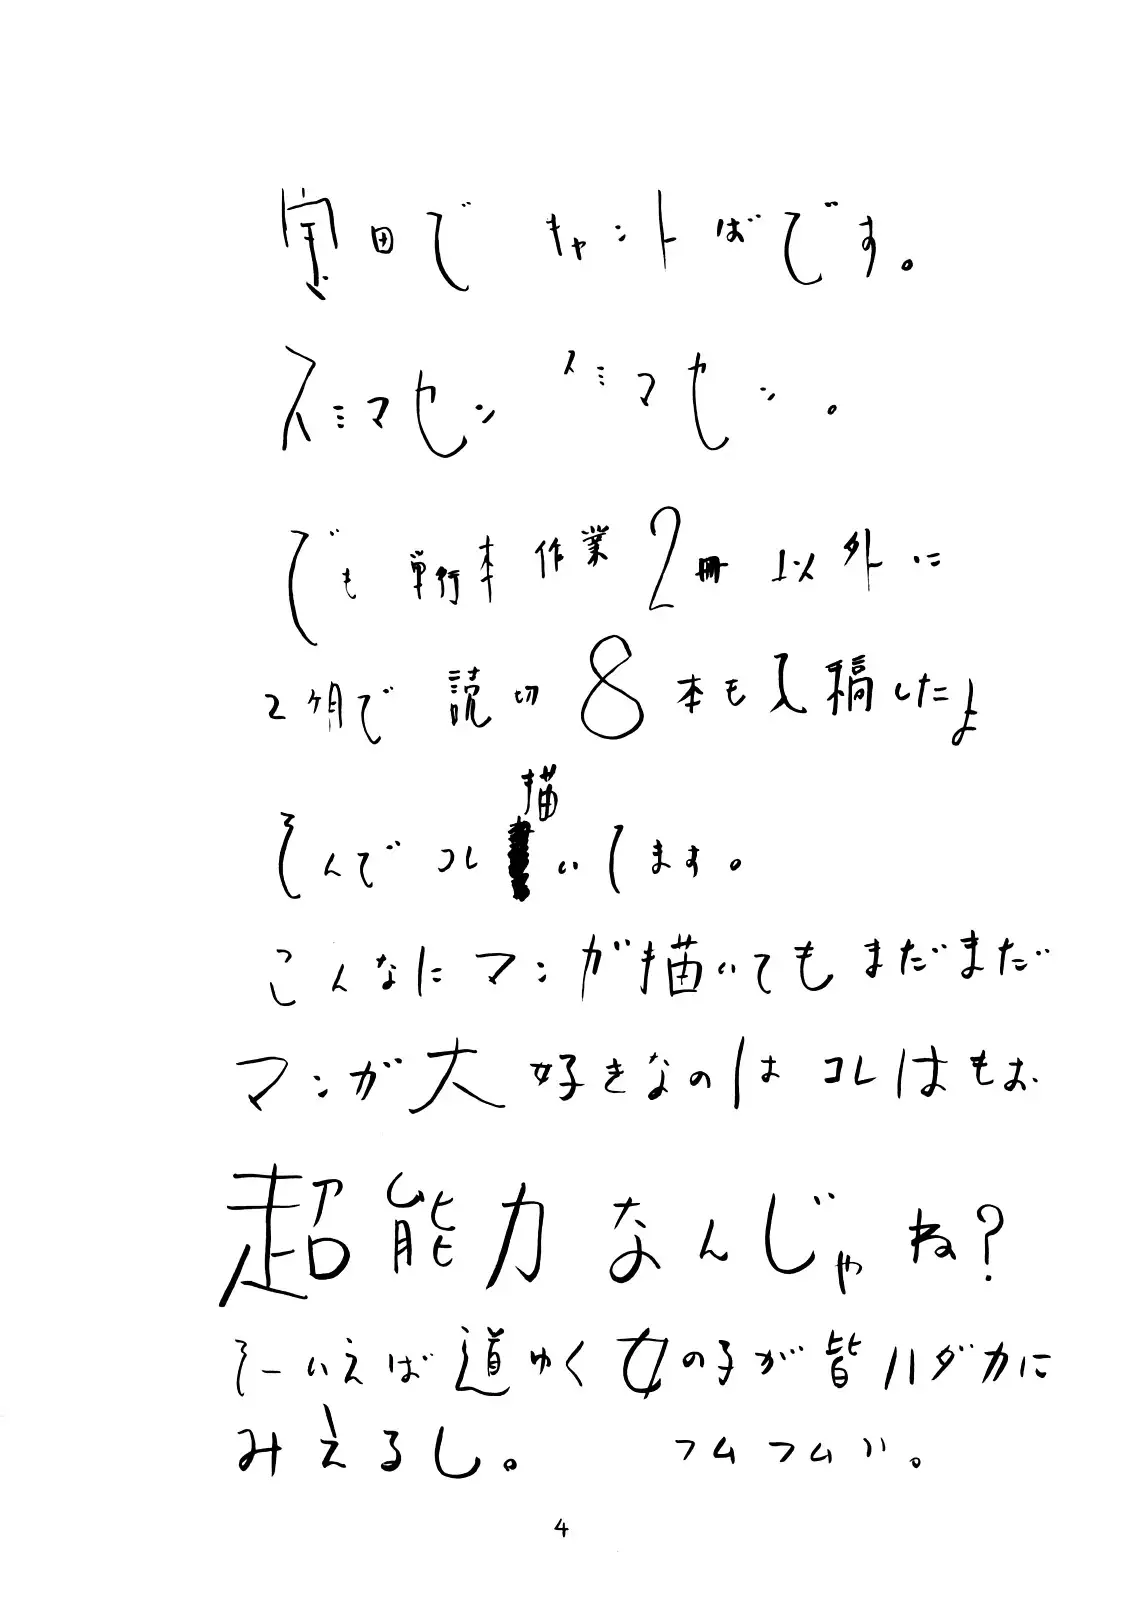 宝田で キャントばです。
スミマセン スミマセン。
でも 単行本 作業 2冊 以外に
2ヶ月で 読切 8本も入稿したよ
そんで コレ描いてます。
こんなに マンガ描いても まだまだ
マンガ大好きなのは コレはもお
超能力なんじゃね?
そーいえば 道ゆく女の子が皆ハダカに
みえるし。 フムフム〃。
4